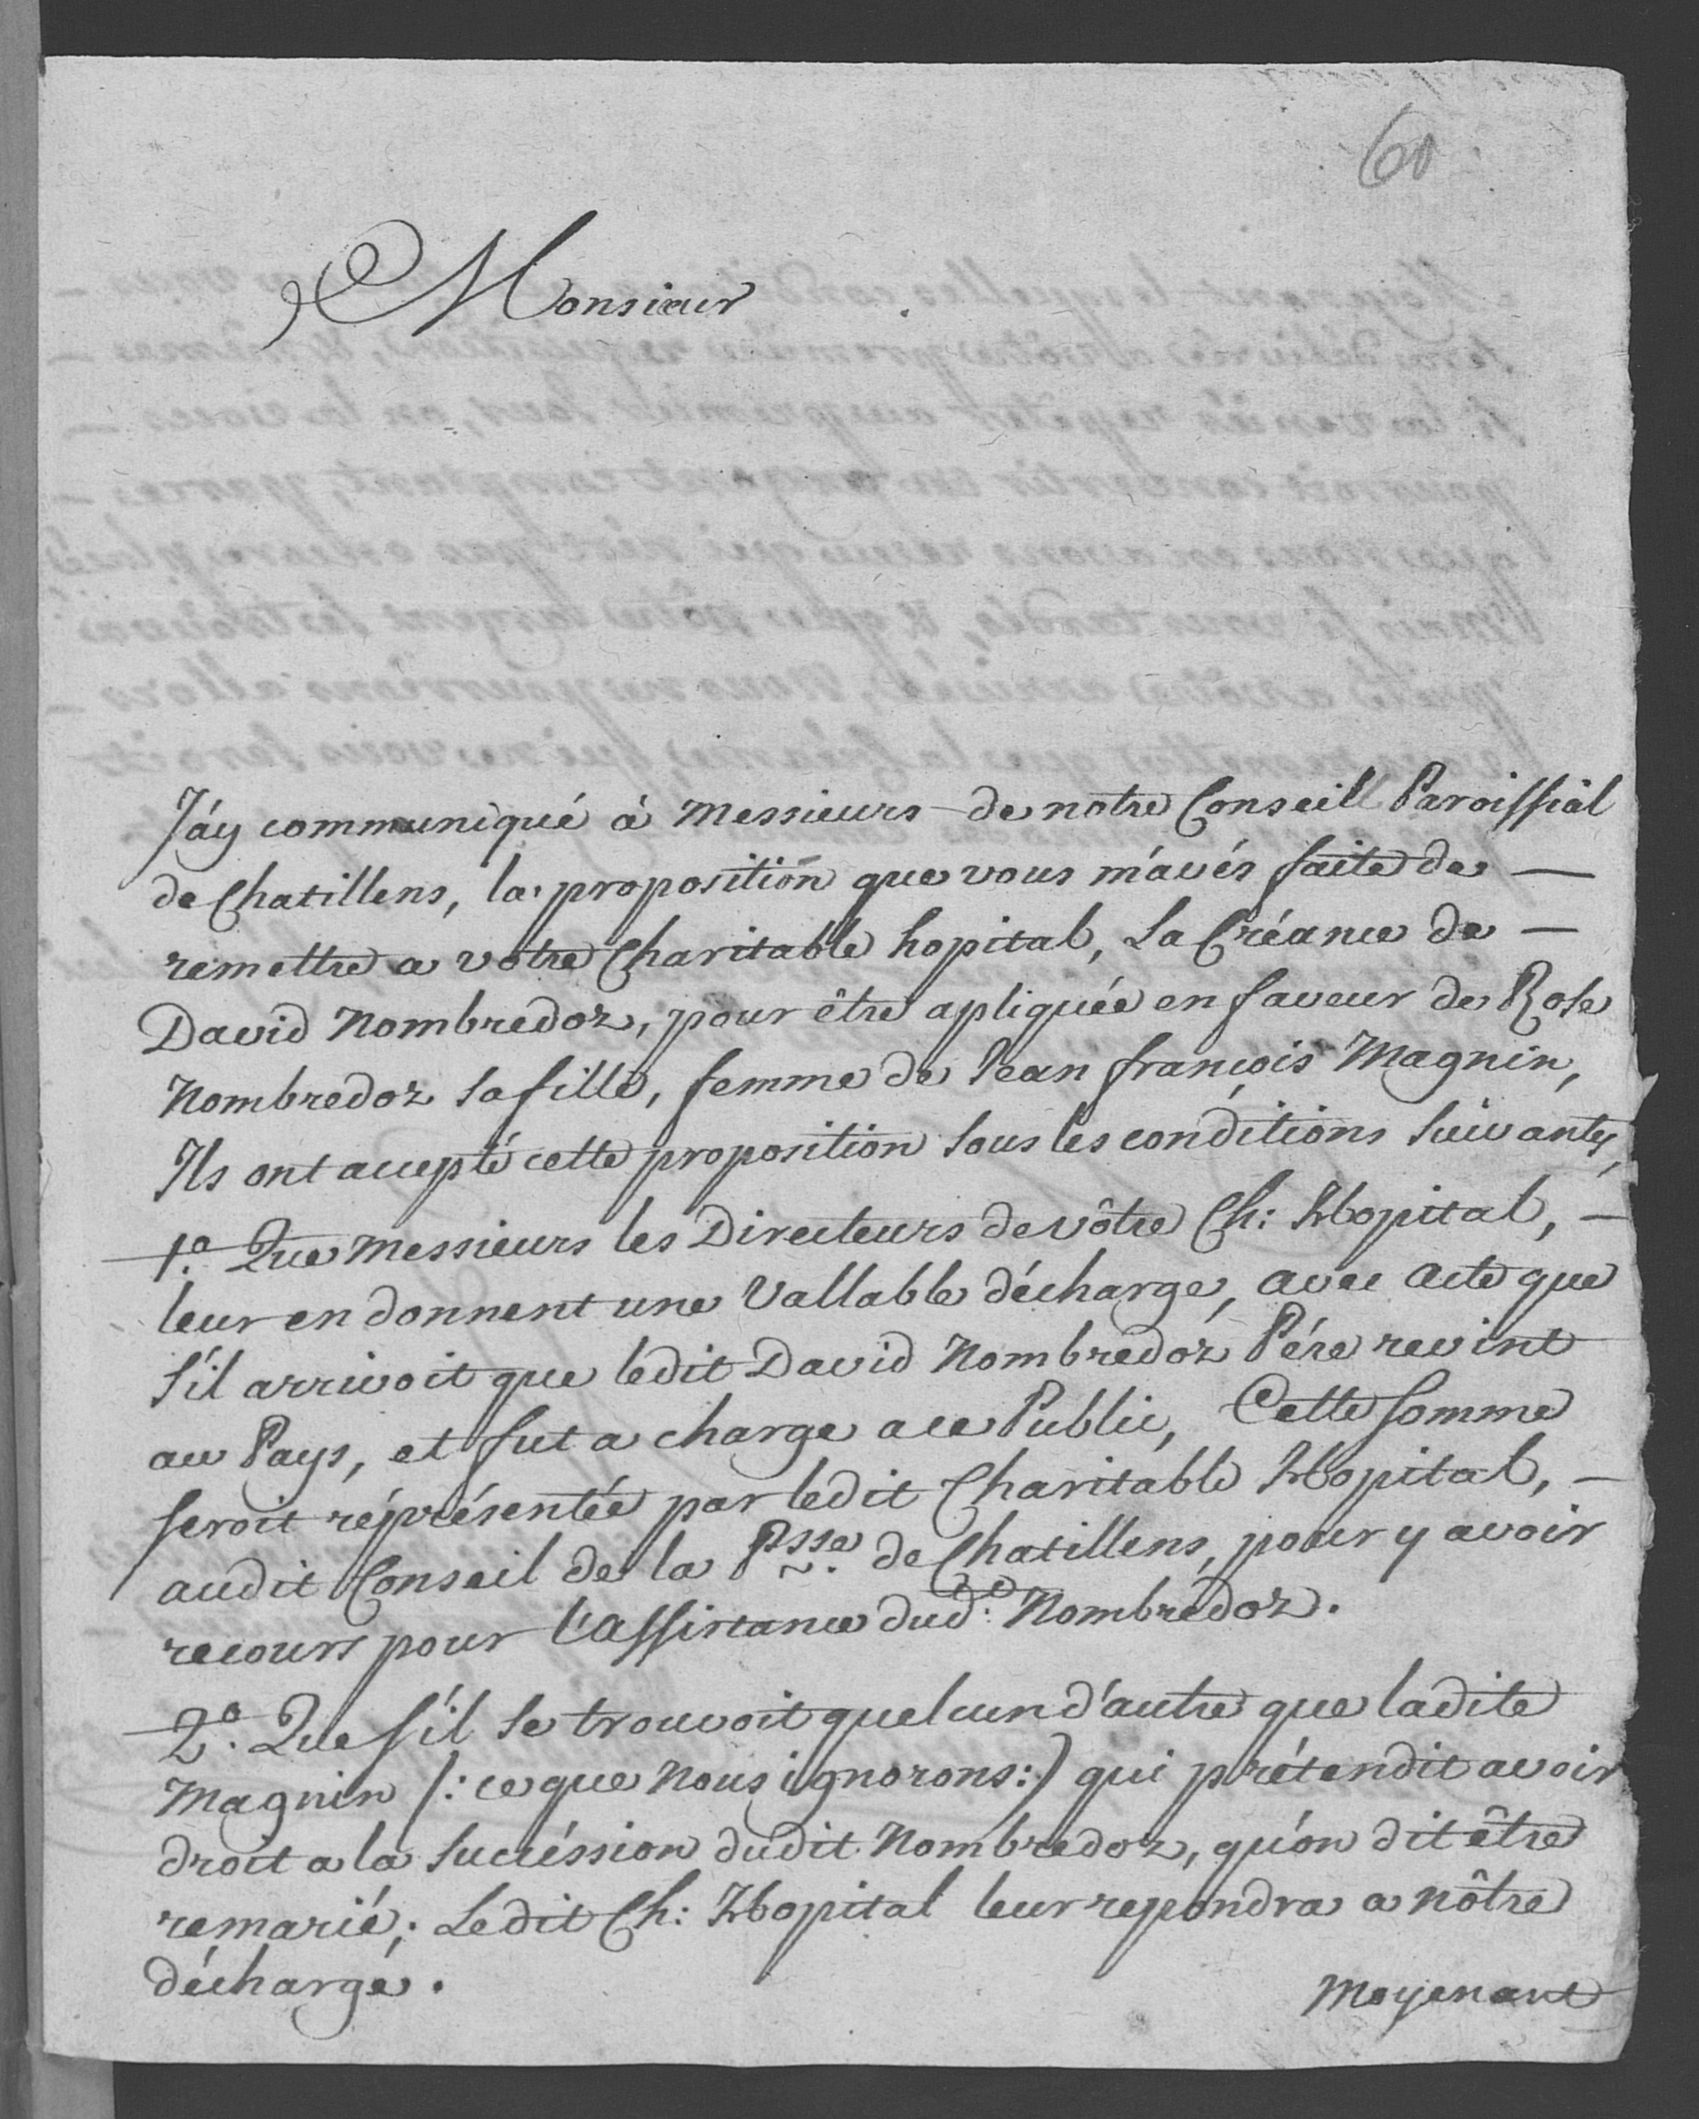 60
Monsieur
J'áy communiqué à Messieurs de notre Conseill Paroissial
de Chatillens, la proposition que vous m'avés faite de —
remettre a votre Charitable hopital, La Créance de —
David Nombredoz, pour être apliquée en faveur de Rose
Nombredoz sa fille, femme de Jean françois Magnin,
Ils ont accepté cette proposition sous les conditions suivantes,
1.º Que Messieurs les Directeurs de vôtre Ch: Hopital, —
leur en donnent une Vallable décharge, avec Acte que
s'il arrivoit que ledit David Nombredoz Pére revint
au Pays, et fut a charge a ce Public, Cette somme
seroit réprésentée par ledit Charitable Hopital, —
audit Conseil de la Psse. de Chatillens, pour y avoir
recours pour l'assistance dud: Nombredoz.
2.º Que s'il se trouvoit quelcun d'autre que ladite
Magnin (: ce que Nous ignorons :) qui prétendit avoir
droit a la succéssion dudit Nombredoz, qu'on dit être
remarié; Ledit Ch: Hopital leur repondra a nôtre
décharge.
Moyenant